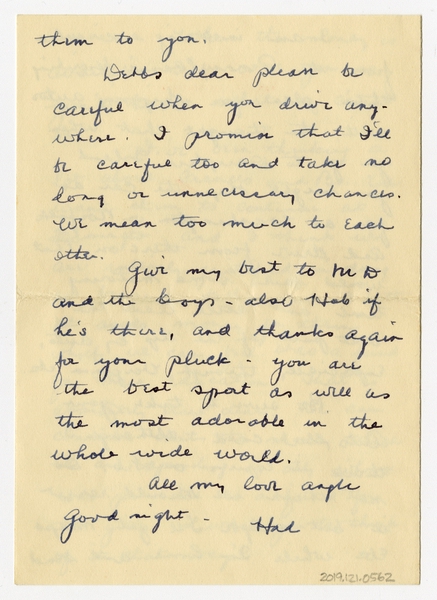 them to you.
Debbs dear please be
careful when you drive any-
where. I promise that I'll
be careful too and take no
long or unnecessary chances.
We mean too much to each
other.
Give my best to M D
and the boys - also Hob if
he's there, and thanks again
for your pluck - you are
the best sport as well as
the most adorable in the
whole wide world.
All my love angle
Good night - Had
2019.121.0562